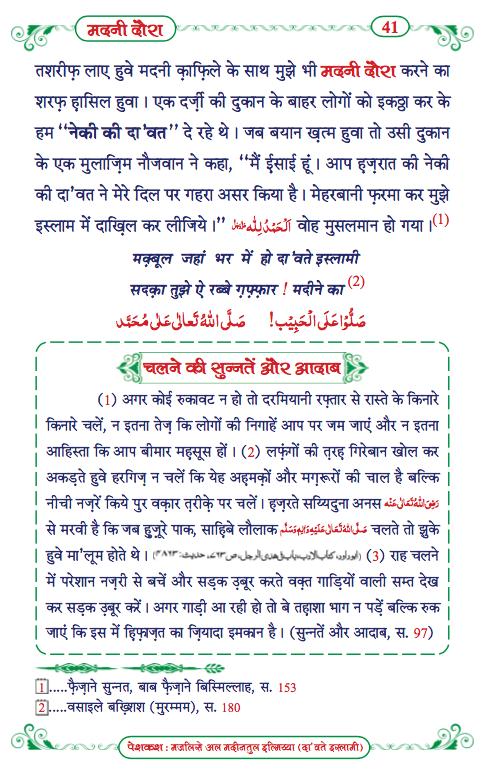 मदनी दौरा 41
तशरीफ़ लाए हुवे मदनी क़ाफ़िले के साथ मुझे भी मदनी दौरा करने का
शरफ़ हासिल हुवा । एक दर्ज़ी की दुकान के बाहर लोगों को इकठ्ठा कर के
हम “नेकी की दा'वत” दे रहे थे । जब बयान ख़त्म हुवा तो उसी दुकान
के एक मुलाज़िम नौजवान ने कहा, “मैं ईसाई हूं । आप हज़रात की नेकी
की दा'वत ने मेरे दिल पर गहरा असर किया है । मेहरबानी फ़रमा कर मुझे
इस्लाम में दाख़िल कर लीजिये ।” اَلْحَمْدُلِلّٰہ वोह मुसलमान हो गया ।(1)
मक़्बूल जहां भर में हो दा'वते इस्लामी
सदक़ा तुझे ऐ रब्बे ग़फ़्फ़ार ! मदीने का (2)
صَلُّوْا عَلَى الْحَبِيْب! صَلَّى اللهُ تَعَالٰى عَلٰى مُحَمَّد
चलने की सुन्नतें और आदाब
(1) अगर कोई रुकावट न हो तो दरमियानी रफ़्तार से रास्ते के किनारे
किनारे चलें, न इतना तेज़ कि लोगों की निगाहें आप पर जम जाएं और न इतना
आहिस्ता कि आप बीमार महसूस हों । (2) लफ़ंगों की त़रह़ गिरेबान खोल कर
अकड़ते हुवे हरगिज़ न चलें कि येह अह़मक़ों और मग़रूरों की चाल है बल्कि
नीची नज़रें किये पुर वक़ार त़रीक़े पर चलें । ह़ज़रते सय्यिदुना अनस رَضِىَ اللهُ تَعَالٰى عَنْه
से मरवी है कि जब हुज़ूरे पाक, साह़िबे लौलाक صَلَّى اللهُ تَعَالٰى عَلَيْهِ وَاٰلِهٖ وَسَلَّم चलते तो झुके
हुवे मा'लूम होते थे । (ابوداود، کتاب الادب، باب فی ھدی الرجل، ص٧٦٣، حدیث: ٤٨٦٣) (3) राह चलने
में परेशान नज़री से बचें और सड़क उ़बूर करते वक़्त गाड़ियों वाली सम्त देख
कर सड़क उ़बूर करें । अगर गाड़ी आ रही हो तो बे तह़ाशा भाग न पड़ें बल्कि रुक
जाएं कि इस में ह़िफ़ाज़त का ज़ियादा इमकान है । (सुन्नतें और आदाब, स. 97)
1.....फ़ैज़ाने सुन्नत, बाब फ़ैज़ाने बिस्मिल्लाह, स. 153
2.....वसाइले बख़्शिश (मुरम्मम), स. 180
पेशकश : मजलिसे अल मदीनतुल इल्मिय्या (दा'वते इस्लामी)